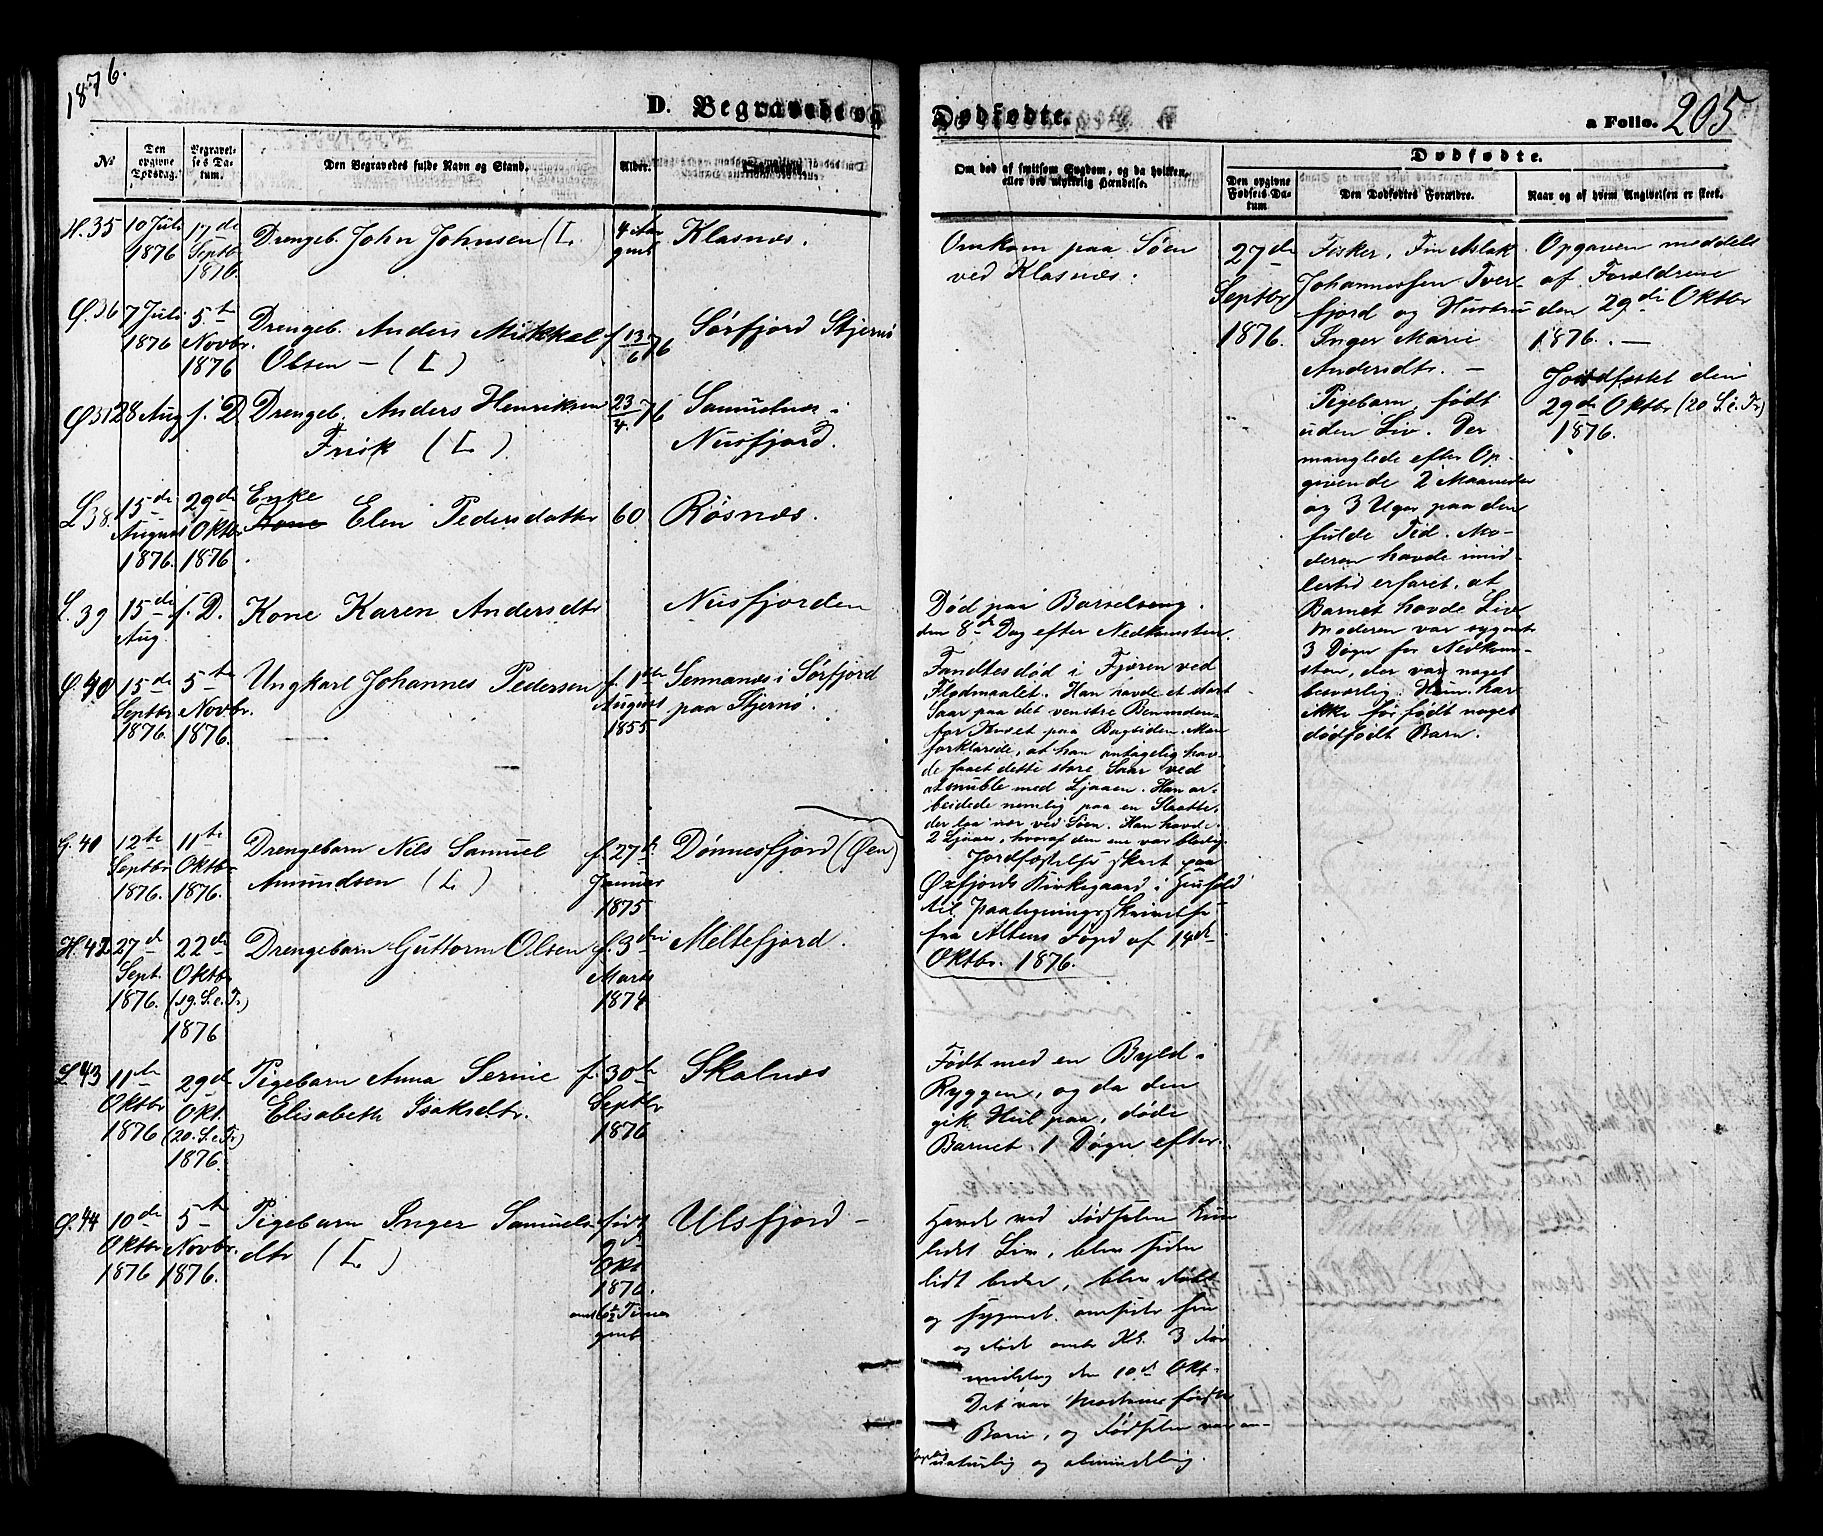 1876.
D. Begravede og Dødfødte.
a Folio. 205
№
Den opgivne Dødsdag.
Begravelses Datum.
Den Begravedes fulde Navn og Stand.
Alder.
Om død af smitsom Sygdom, og da hvilken, eller ved ulykkelig Hændelse.
Dødfødte.
Den opgivne Fødsels Datum
Den Dødfødtes Forældre.
Naar og af hvem Angivelsen er skeet.
H. 35
10 Juli
1876
17de
Septb.
1876.
Drengeb. John Johnsen (L.)
4 Aar
gml
Klasnæs.
Omkom paa Søen
ved Klasnæs.
Ø. 36
7 Juli
1876
5te
Novbr.
1876
Drengeb. Anders Mikkal
Olsen – (L)
f. 13/6 76
Sørfjord Stjernø
28 Aug
f. D.
Drengeb. Anders Henriksen
Frisk (L).
23/4. 76
Nusfjord.
L 38.
15de
August
1876.
29de
Oktbr
1876
Enke
Kone Elen Pedersdatter
60
Røsnæs.
L. 39
15de
Aug.
f. D.
Kone Karen Andersdtr
Nusfjorden
Død paa Barselseng.
den 8de Dag efter Nedkomsten.
Ø. 40
15de
Septbr
1876.
5te
Novbr.
1876.
Ungkarl Johannes Pedersen
f. 1ste
August
1855
Sennanæs i Sørfjord
paa Stjernø.
Fandtes død i Fjæren ved
Flodmaalet. Han havde et stort
Saar paa det venstre Been neden-
for Knæet paa Bagsiden. Man
forklarede, at han antagelig hav-
de faaet dette store Saar ved
at snuble med Ljaaen. Han ar-
beidede nemlig paa en Slaatte,
der laa nær ved Søen. Han havde
2 Ljaaer, hvoraf den ene var
Jordfæstelse skeet paa
Øxfjords Kirkegaard i Henhold
til Paategningsskrivelse
fra Altens Foged af 14de
Oktbr. 1876.
12te
Septbr
1876.
11te
Oktbr.
1876.
Drengebarn Nils Samuel
Amundsen (L)
f. 27de
Januar
1875
Dønnesfjord (Øen)
H. 42
27de
Sept.
1876.
22de
Oktbr
(19. S. e. Tr.)
1876
Drengebarn Guttorm Olsen
f. 3die
Marts
1874
Meltefjord.
L 43
11te
Oktbr
1876
29de
Okt.
(20. S. e. Tr)
1876.
Pigebarn Anna Serine
Elisabeth Isaksdtr.
f. 30te
Septbr
1876
Skalnæs
Født med en Byld i
Ryggen, og da den
gik Hul paa, døde
Barnet 1 Døgn efter.
Ø. 44
10de
Oktbr
1876
5te
Novbr.
1876.
Pigebarn Inger Samuels-
dtr (L.)
født
9de
Okt
1876.
Timer
gml
Ulsfjord –
Havde ved Fødselen kun
lidet Liv, blev siden
lidt bedre, blev døbt
og
og døde omtr Kl. 3 For-
middag den 10de Okt.
Det var Moderens første
Barn, og Fødselen var
naturlig og almindelig.
27de
Septbr
1876.
Fisker, Fin Aslak
Johannessen Tver-
fjord og Hustru
Inger Marie
Andersdtr. –
Pigebarn, født
uden Liv. Der
manglede efter Op-
givende 2 Maaneder
og 3 Uger paa den
fulde Tid. Mo-
deren havde imid-
lertid erfaret, at
Barnet havde Liv
Moderen var sygeute
3 Døgn før Nedkom-
sten, der var noget
besværlig. Hun har
ikke før født noget
dødfødt Barn.
Opgaven meddelt
af Forældrene
den 29de Oktbr
1876. –
Jordfæstet den
29de Oktbr (20. S. e. Tr)
1876.